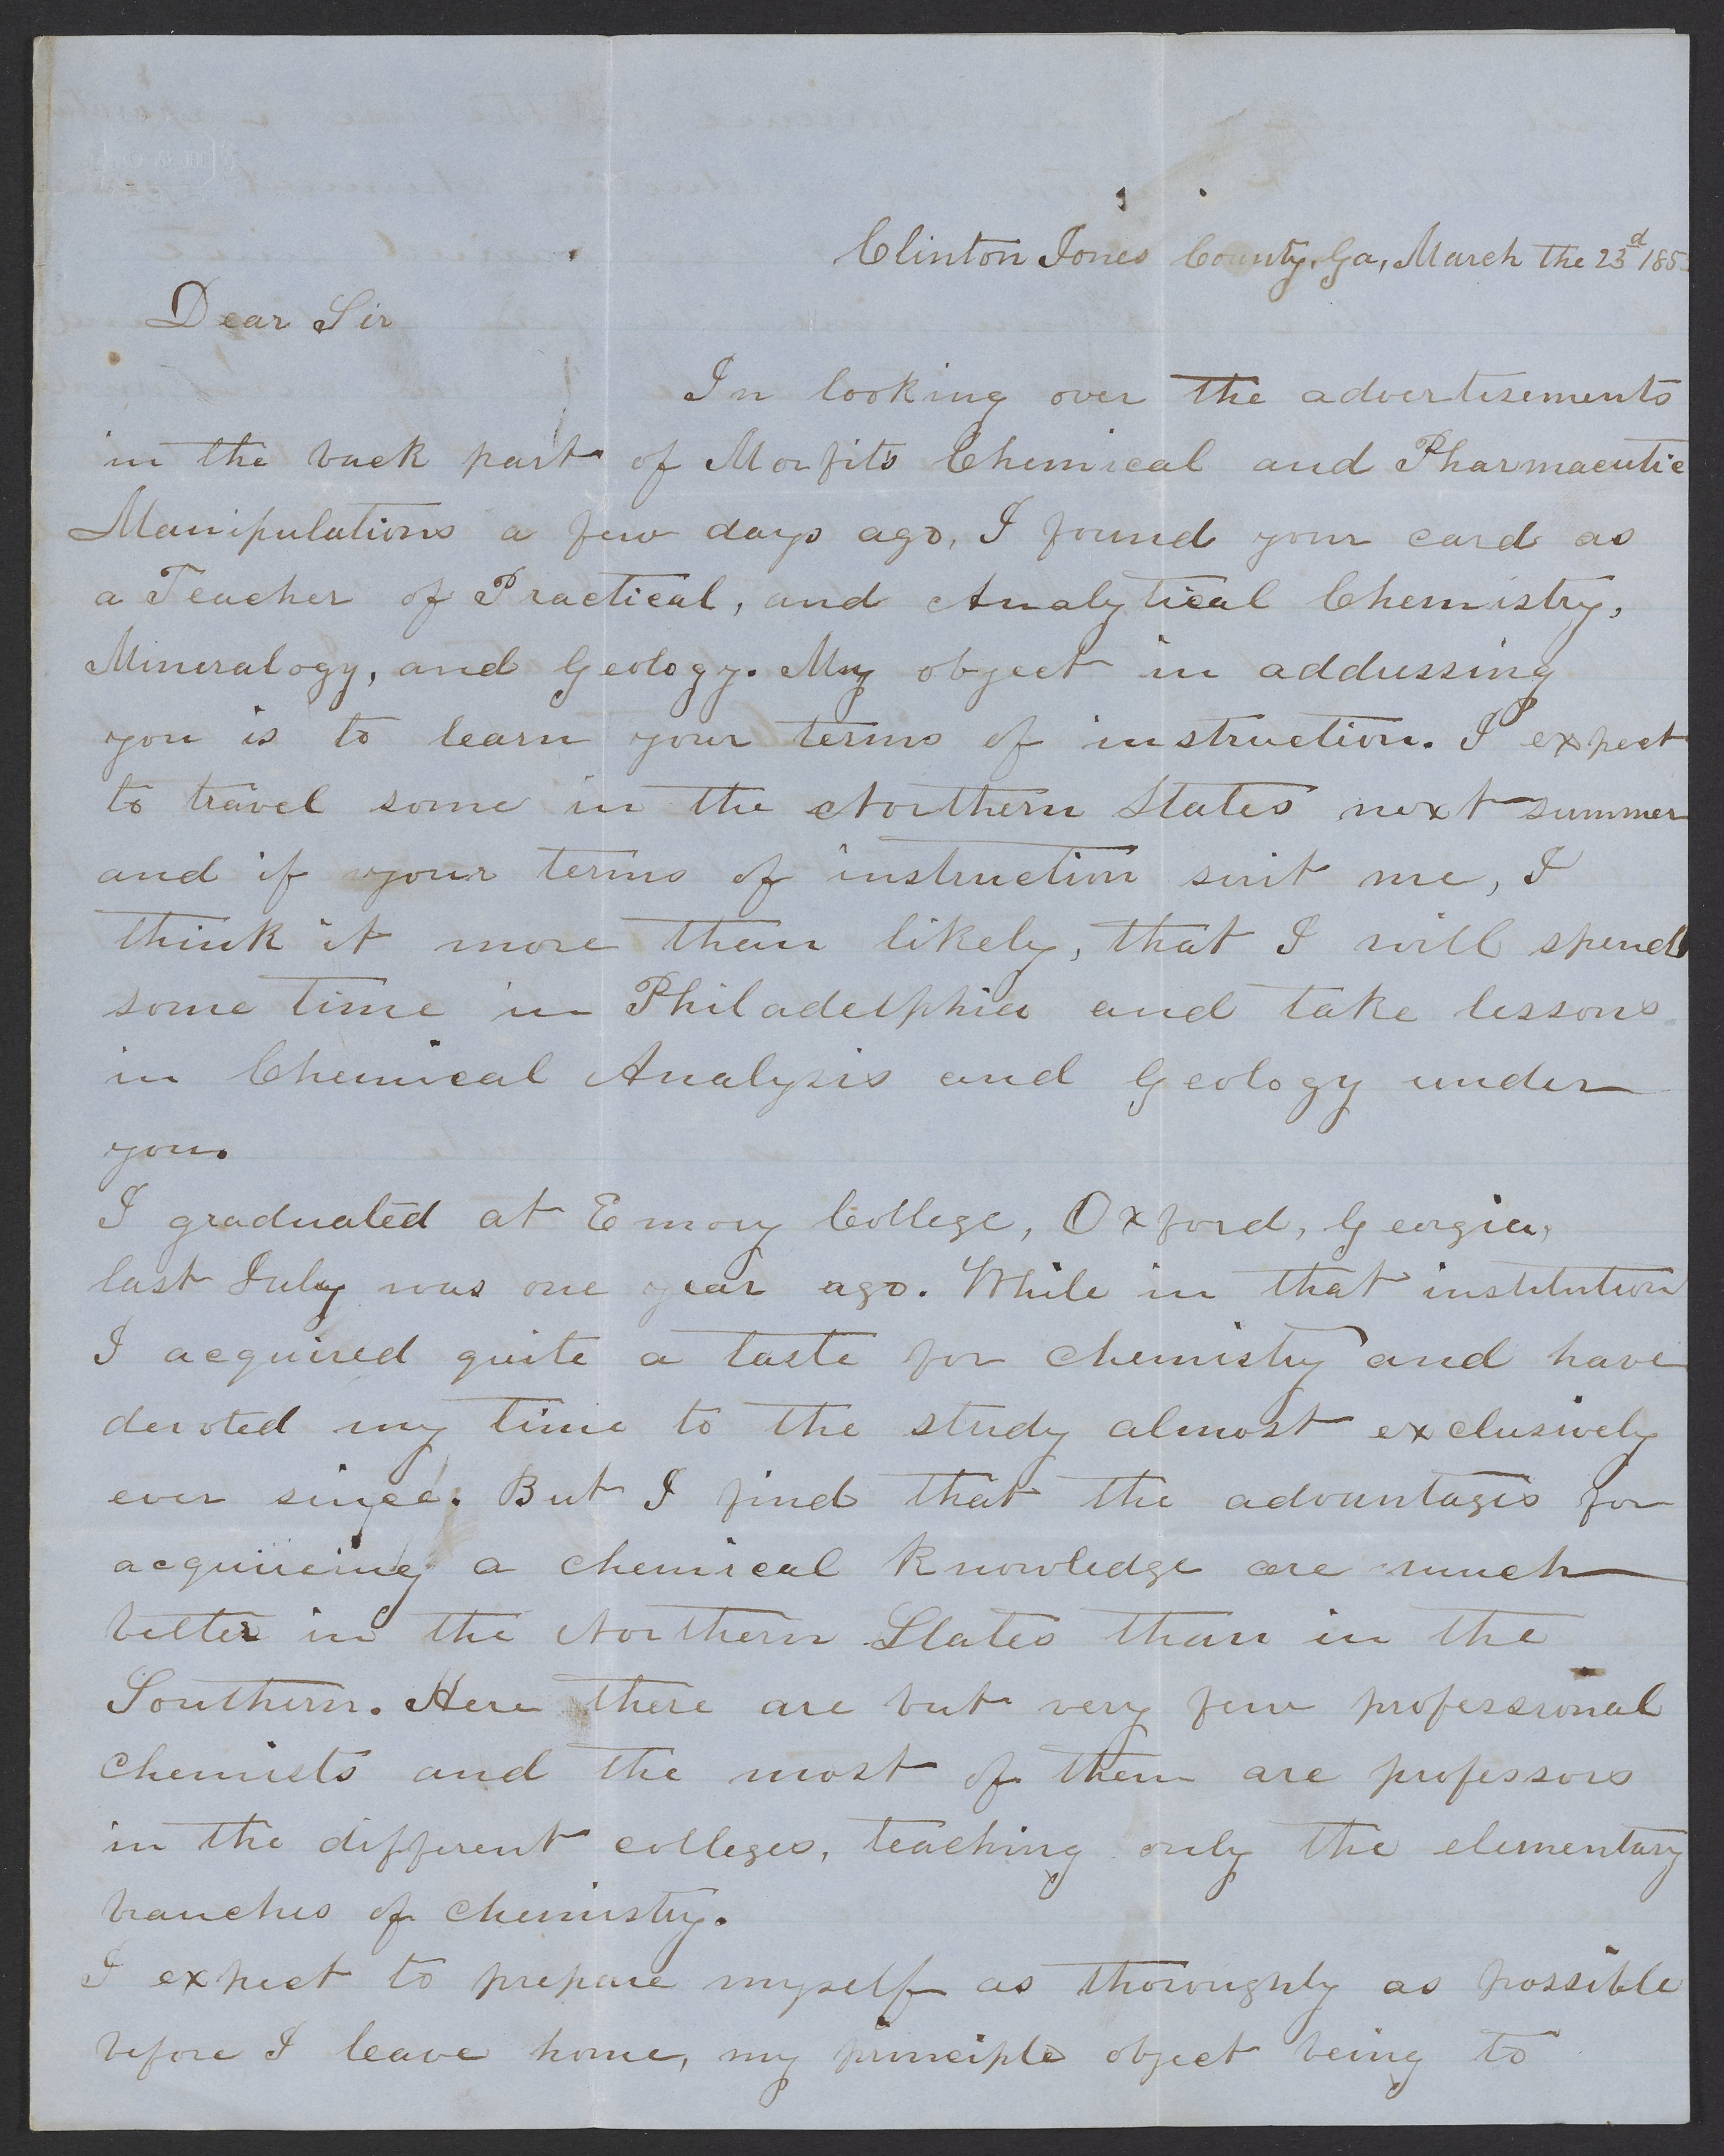 Clinton Jones County, Ga, March the 23d 185
Dear Sir
In looking over the advertisements
in the back part of Morfit's Chemical and Pharmaceutic
Manipulations a few days ago, I found your card as
a Teacher of Practical, and Analytical Chemistry,
Mineralogy, and Geology. My object in addressing
you is to learn your terms of instruction. I expect
to travel some in the Northern States next summer
and if your terms of instruction suit me, I
think it more than likely, that I will spend
some time in Philadelphia and take lessons
in Chemical Analysis and Geology under
you.
I graduated at Emory College, Oxford, Georgia,
last July was one year ago. While in that institution
I acquired quite a taste for chemistry and have
devoted my time to the study almost exclusively
ever since. But I find that the advantages for
acquireing a chemical knowledge are much
better in the Northern States than in the
Southern. Here there are but very few professional
chemists and the most of them are professors
in the different colleges, teaching only the elementary
branches of chemistry.
I expect to prepare myself as thoroughly as possible
before I leave home, my principle object being to